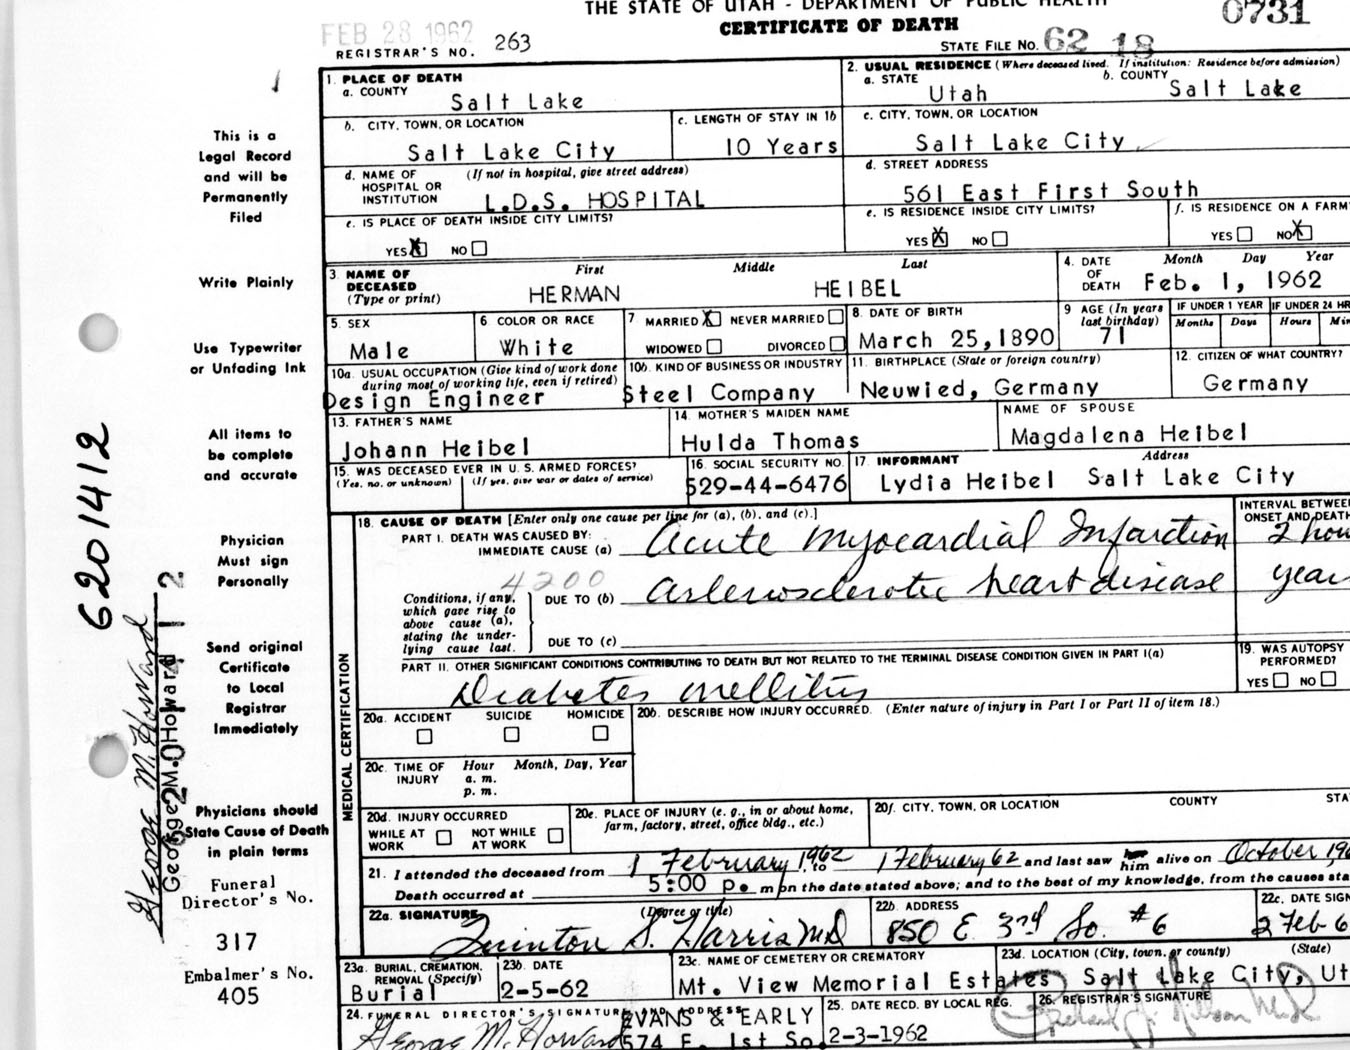 THE STATE OF UTAH - DEPARTMENT OF PUBLIC HEALTH
CERTIFICATE OF DEATH
0731
FEB 28 1962
REGISTRAR'S NO. 263
STATE FILE NO. 62 18
1. PLACE OF DEATH
a. COUNTY
Salt Lake
2. USUAL RESIDENCE (Where deceased lived. If institution: Residence before admission)
a. STATE
Utah
b. COUNTY
Salt Lake
b. CITY, TOWN, OR LOCATION
Salt Lake City
c. LENGTH OF STAY IN 1b
10 Years
c. CITY, TOWN, OR LOCATION
Salt Lake City
d. NAME OF HOSPITAL OR INSTITUTION (If not in hospital, give street address)
L.D.S. HOSPITAL
d. STREET ADDRESS
561 East First South
e. IS PLACE OF DEATH INSIDE CITY LIMITS?
YES X NO
e. IS RESIDENCE INSIDE CITY LIMITS?
YES X NO
f. IS RESIDENCE ON A FARM
YES NO X
3. NAME OF DECEASED (Type or print)
First Middle Last
HERMAN HEIBEL
4. DATE OF DEATH
Month Day Year
Feb. 1, 1962
5. SEX
Male
6 COLOR OR RACE
White
7 MARRIED X NEVER MARRIED
WIDOWED DIVORCED
8. DATE OF BIRTH
March 25,1890
9 AGE (In years last birthday)
71
IF UNDER 1 YEAR
Months Days
IF UNDER 24 HR
Hours Min
10a. USUAL OCCUPATION (Give kind of work done during most of working life, even if retired)
Design Engineer
10b. KIND OF BUSINESS OR INDUSTRY
Steel Company
11. BIRTHPLACE (State or foreign country)
Neuwied, Germany
12. CITIZEN OF WHAT COUNTRY?
Germany
13. FATHER'S NAME
Johann Heibel
14. MOTHER'S MAIDEN NAME
Hulda Thomas
NAME OF SPOUSE
Magdalena Heibel
15. WAS DECEASED EVER IN U.S. ARMED FORCES?
(Yes, no, or unknown) (If yes, give war or dates of service)
16. SOCIAL SECURITY NO.
529-44-6476
17. INFORMANT Address
Lydia Heibel Salt Lake City
MEDICAL CERTIFICATION
18. CAUSE OF DEATH [Enter only one cause per line for (a), (b), and (c).]
PART I. DEATH WAS CAUSED BY:
IMMEDIATE CAUSE (a) Acute Myocardial Infarction
INTERVAL BETWEEN
ONSET AND DEATH
2 hou
4200
Conditions, if any, which gave rise to above cause (a), stating the underlying cause last.
DUE TO (b) Arteriosclerotic heart disease
year
DUE TO (c)
PART II. OTHER SIGNIFICANT CONDITIONS CONTRIBUTING TO DEATH BUT NOT RELATED TO THE TERMINAL DISEASE CONDITION GIVEN IN PART I(a)
Diabetes mellitus
19. WAS AUTOPSY PERFORMED?
YES NO
20a. ACCIDENT SUICIDE HOMICIDE
20b. DESCRIBE HOW INJURY OCCURRED. (Enter nature of injury in Part I or Part II of item 18.)
20c. TIME OF INJURY
Hour Month, Day, Year
a. m.
p. m.
20d. INJURY OCCURRED
WHILE AT WORK NOT WHILE AT WORK
20e. PLACE OF INJURY (e. g., in or about home, farm, factory, street, office bldg., etc.)
20f. CITY, TOWN, OR LOCATION COUNTY STA
21. I attended the deceased from 1 February 1962, to 1 February 62 and last saw her him alive on October 196
Death occurred at 5:00 p. m on the date stated above; and to the best of my knowledge, from the causes sta
22a. SIGNATURE (Degree or title)
Quinton S. Harris MD
22b. ADDRESS
850 E 3rd So. #6
22c. DATE SIGN
2 Feb 6
23a. BURIAL, CREMATION, REMOVAL (Specify)
Burial
23b. DATE
2-5-62
23c. NAME OF CEMETERY OR CREMATORY
Mt. View Memorial Estates
23d. LOCATION (City, town, or county) (State)
Salt Lake City, Ut
24. FUNERAL DIRECTOR'S SIGNATURE AND ADDRESS
George M. Howard
EVANS & EARLY
574 E. 1st So.
25. DATE RECD. BY LOCAL REG.
2-3-1962
26. REGISTRAR'S SIGNATURE
This is a
Legal Record
and will be
Permanently
Filed
Write Plainly
Use Typewriter
or Unfading Ink
All items to
be complete
and accurate
Physician
Must sign
Personally
Send original
Certificate
to Local
Registrar
Immediately
Physicians should
State Cause of Death
in plain terms
Funeral
Director's No.
317
Embalmer's No.
405
6201412
George M. Howard
George M. Howard